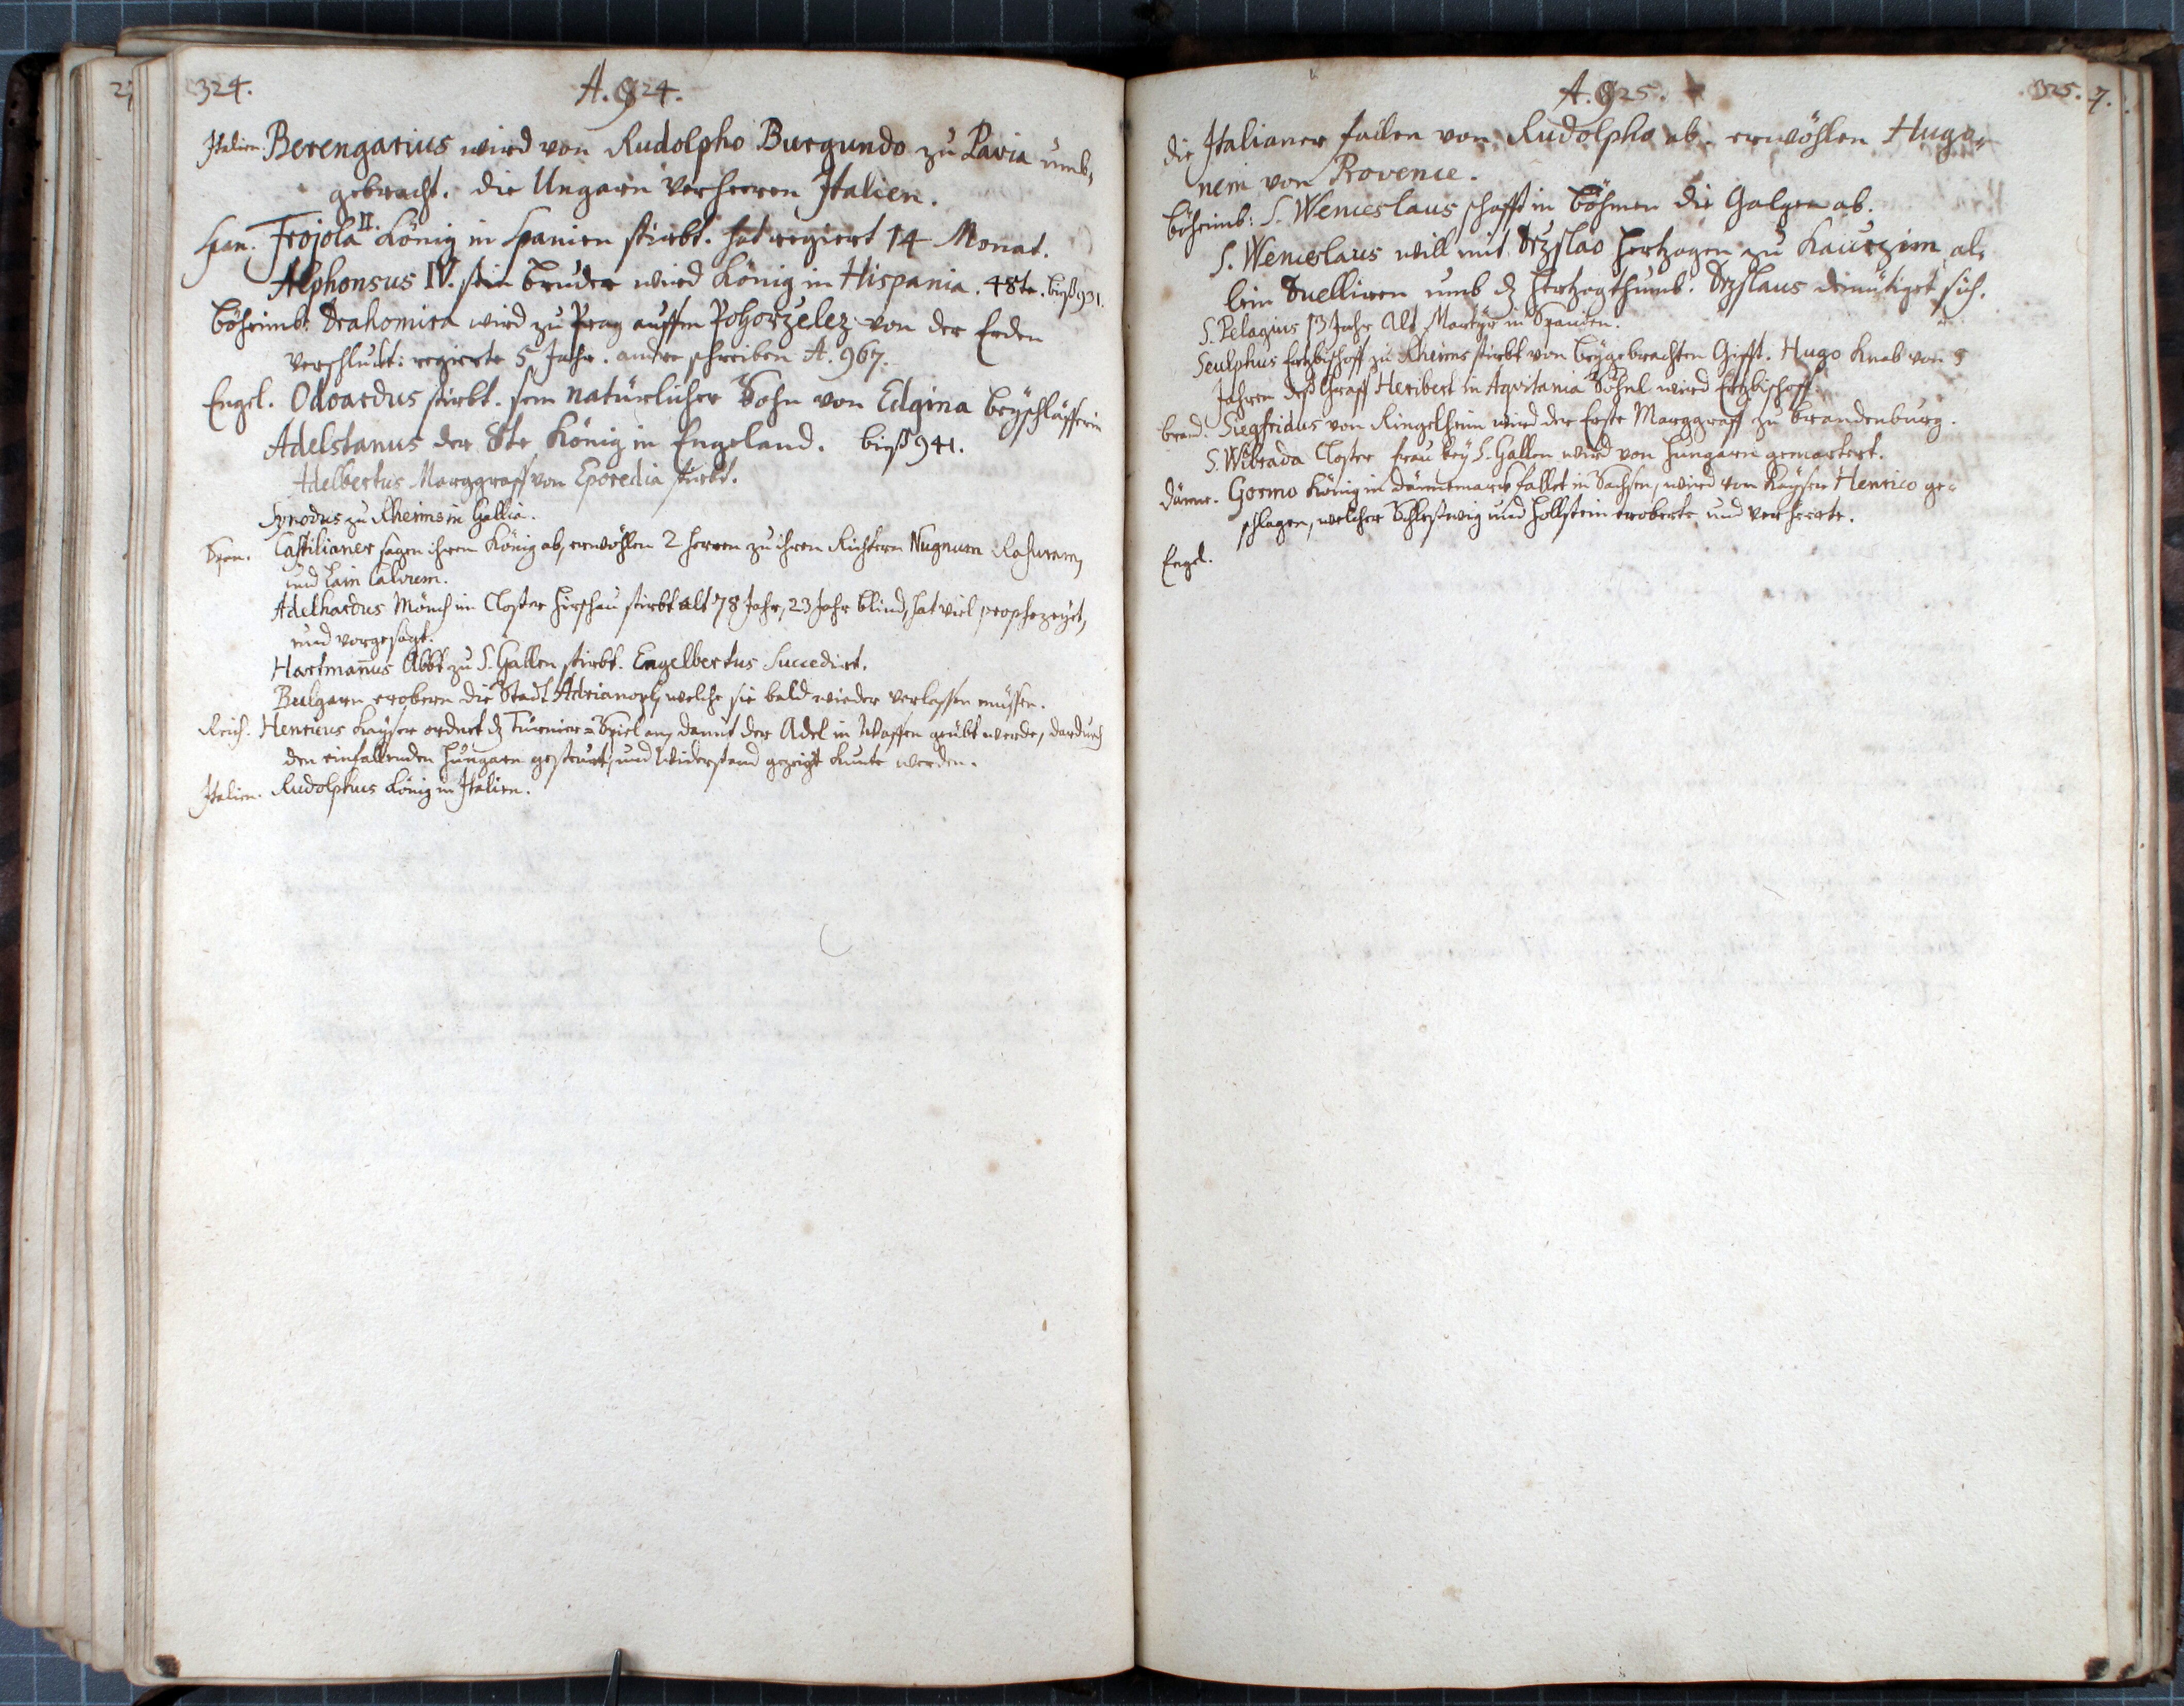 324.
A. 924.
Italien. Berengarius wird von Rudolpho Burgundo zu Pavia umb,
gebracht. die Ungarn verheeren Italien.
Span. Frojola II. König in Spanien stirbt. hat regiert 14 Monat.
Alphonsus IV. sein Bruder wird König in Hispania. 48te. biß 931.
Böheimb: Drahomira wird zu Prag auffm Pohorzelez von der Erden
verschluckt: regierte 5 Jahr. andre schreiben A. 967.
Engel. Odoardus stirbt. sein natürlicher Sohn von Edgina beyschläfferin
Adelstanus der 8te König in Engeland. biß 941.
Adelbertus Marggraff von Eporedia stirbt.
Synodus zu Rheims in Gallia.
Span. Castilianer sagen ihrem König ab, erwöhlen 2 Herren zu ihren Richtern Nugnum Rasuram,
und Lain Calvum.
Adelhardus Mönch im Closter Hirschau stirbt alt 78 Jahr, 23 Jahr blind, hat viel prophezeyt,
und vorgesagt.
Hartmañus Abbt zu S. Gallen stirbt. Engelbertus succedirt.
Bulgarn erobern die Stadt Adrianopl, welche sie bald wieder verlassen müssen.
Reich. Henricus Kayser ordnet dz Turnier=Spiel an, damit der Adel in Waffen geübt werde, dardurch
den einfallenden Hungarn gesteurt, und Widerstand gezeigt kunte werden.
Italien. Rudolphus König in Italien.
A. 925.
325.
7.
die Italianer fallen von Rudolpho ab. erwöhlen Hugo=
nem von Provence.
Böheimb: S. Wenceslaus schafft in Böhmen die Galgen ab.
S. Wenceslaus will mit Drzslao Hertzogen zu Kaurzim al,
lein Duelliren umb dz Hertzogthumb. Drzslaus demütiget sich.
S. Pelagius 13 Jahr alt Martyr in Spanien.
Seulphus Ertzbischoff zu Rheims stirbt von beygebrachten Gifft. Hugo Knab von 5
Jahren deß Graff Heribert in Aqvitania Söhnl wird Ertzbischoff.
Brand. Siegfridus von Ringelheim wird der Erste Marggraff zu Brandenburg.
S. Wibrada Closter frau bey S. Gallen wird von Hungarn gemartert.
Dänne. Gormo König in Dännemarck fallet in Sachsen, wird vom Kayser Henrico ge=
schlagen, welcher Schleßwig und Hollstein eroberte und verheerte.
Engel.